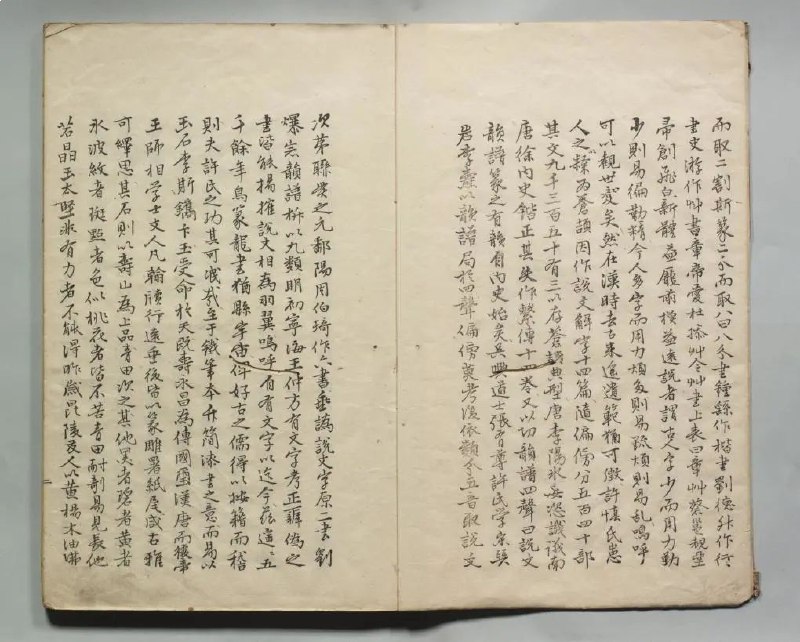 而取二割斯篆二分而取八曰八分書鍾繇作楷書劉德升作行
書史游作艸書章帝愛杜操艸令艸書上表曰章艸蔡邕觀堊
帚創飛白新體益靡
古人字少而用力勤
少則易徧勤精今人多字而用力煩多則易疏煩則易亂嗚呼
可以觀世變矣然在漢時去古未遠遺範猶可徵許慎氏患
人之 為蒼頡因作說文解字十四篇隨偏傍分五百四十部
其文九千三百五十有三以存蒼頡典型唐李陽冰
唐徐內史鍇正其失作繫傳十四卷又以切韻譜四聲曰說文
韻譜篆之有韻自內史始矣吳興道士張有尊許氏學宋吳
李燾以韻譜局於四聲偏傍奠考復依類 五音取說文
次第聯 之元鄱陽周伯琦作六書 譌說文字原二書劉
爆 韻譜 以九類明初寧海王仲方有文字考正 偽之
書皆能揚搉說文相為羽翼嗚呼自有文字以迄今茲
千餘年鳥篆龍書猶縣宇宙俾好古之儒得以按籍而稽
則夫許氏之功其可 哉至于鐵筆本升簡漆書之意而易以
玉石李斯鐫卞玉受命於天既壽永昌為傳國璽漢唐而
王師相學士文人凡翰牘行遠垂後皆以篆雕署紙尾咸古雅
可繹思其石則以壽山為上品青田次之其他黑者 者黃者
水波紋者 點者色似桃花者皆不若青田耐剞易見長他
若晶玉太堅非有力者不能得昨歲毘陵友人 黃楊木油